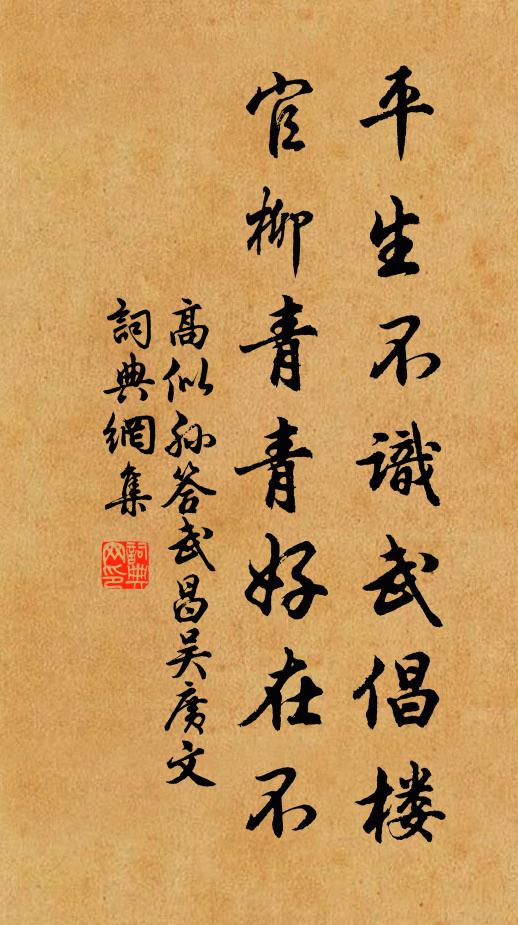 平生不識武倡楼
官柳青青好在不
高似孙答武昌吴廣文
詞典網集
詞典网印